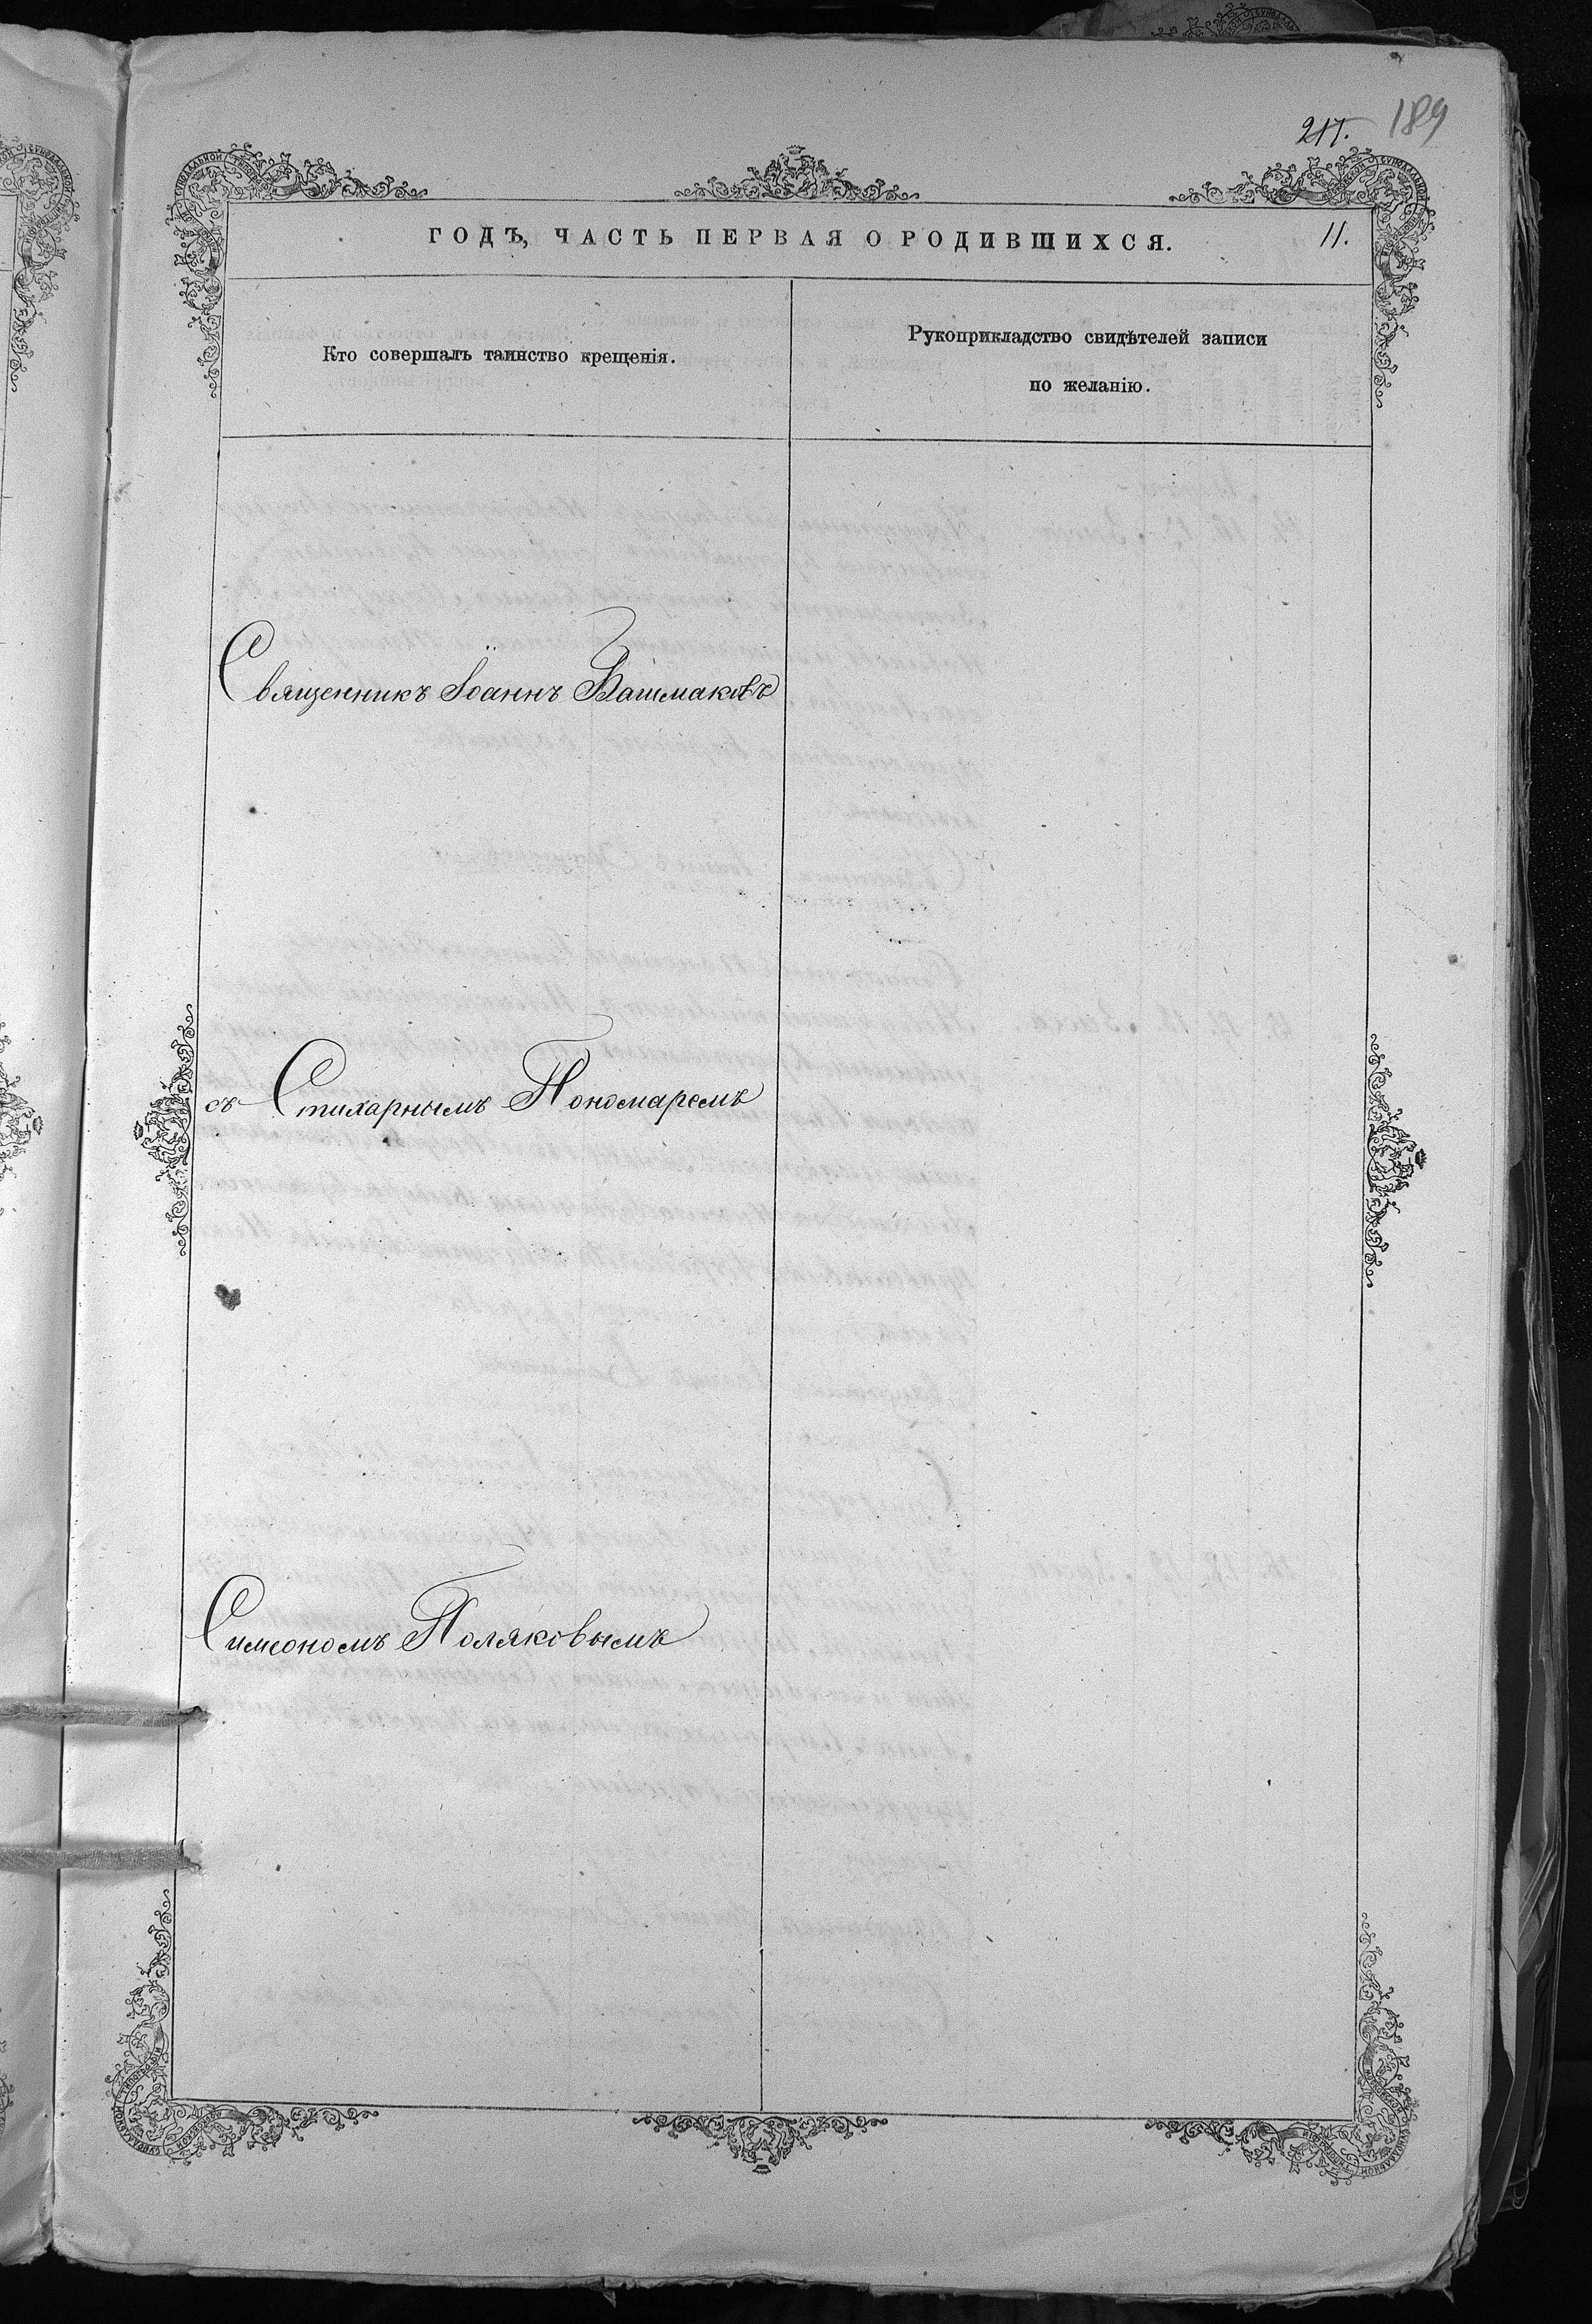 217. 189
ГОДЪ, ЧАСТЬ ПЕРВАЯ О РОДИВШИХСЯ. 11.
Кто совершалъ таинство крещенія.
Рукоприкладство свидѣтелей записи
по желанію.
Священникъ Іоаннъ Башмаковъ
съ Стихарнымъ Пономаремъ
Симеономъ Поляковымъ